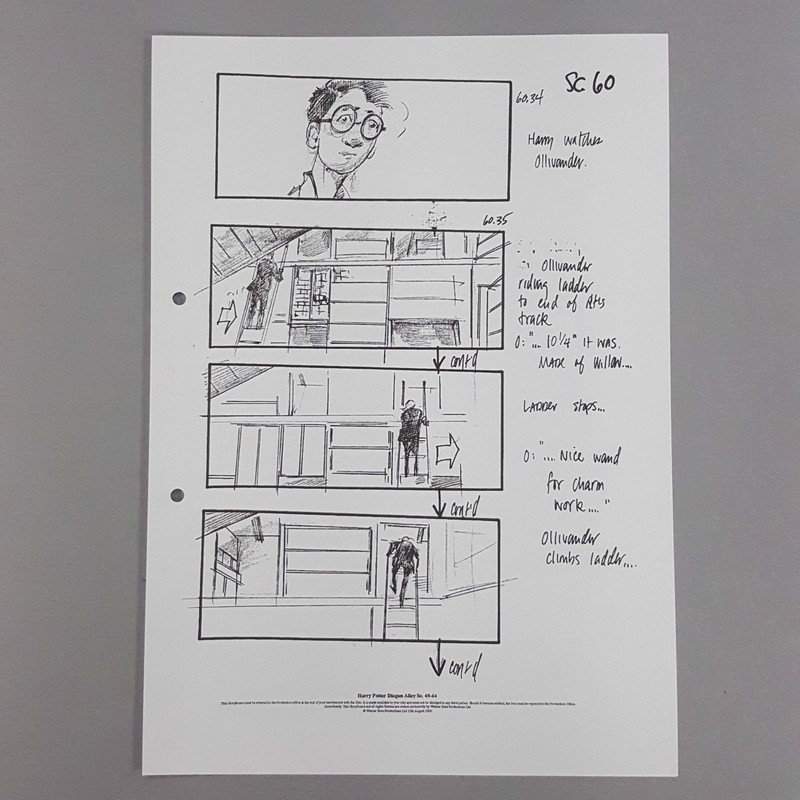 SC 60
60.34
Harry watches
Ollivander.
60.35
Ollivander
riding ladder
to end of its
track
O: "... 10 1/4" it was.
Made of willow....
cont'd
Ladder stops...
O: "... Nice wand
for charm
work...."
cont'd
Ollivander
climbs ladder....
cont'd
Harry Potter Diagon Alley Sc. 49-64